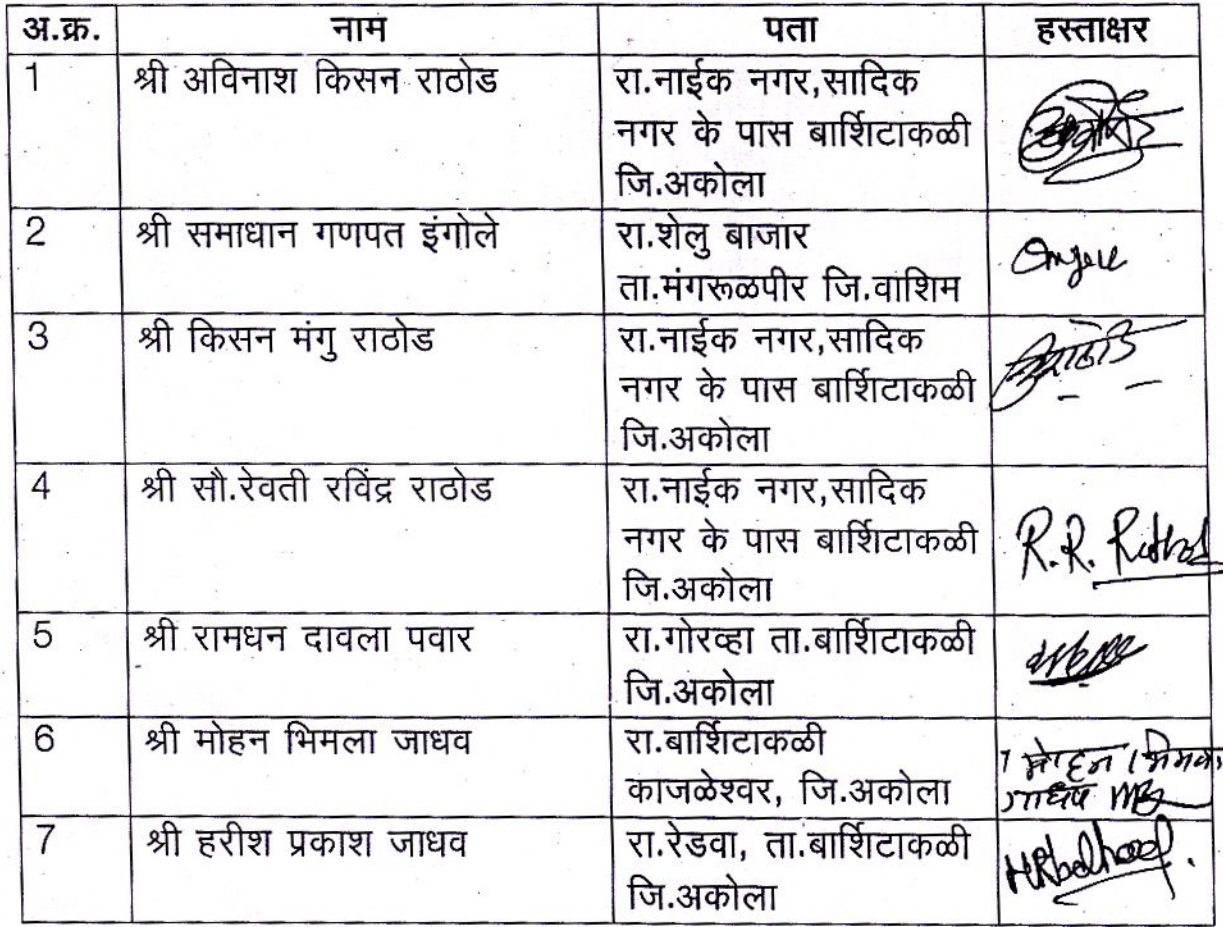 अ.क्र. नाम पता हस्ताक्षर
1 श्री अविनाश किसन राठोड रा.नाईक नगर,सादिक
नगर के पास बार्शिटाकळी
जि.अकोला
2 श्री समाधान गणपत इंगोले रा.शेलु बाजार
ता.मंगरूळपीर जि.वाशिम
3 श्री किसन मंगु राठोड रा.नाईक नगर,सादिक
नगर के पास बार्शिटाकळी
जि.अकोला
4 श्री सौ.रेवती रविंद्र राठोड रा.नाईक नगर,सादिक
नगर के पास बार्शिटाकळी
जि.अकोला
R.R. Rathod
5 श्री रामधन दावला पवार रा.गोरव्हा ता.बार्शिटाकळी
जि.अकोला
6 श्री मोहन भिमला जाधव रा.बार्शिटाकळी
काजळेश्वर, जि.अकोला
मोहन भिमला
जाधव
7 श्री हरीश प्रकाश जाधव रा.रेडवा, ता.बार्शिटाकळी
जि.अकोला